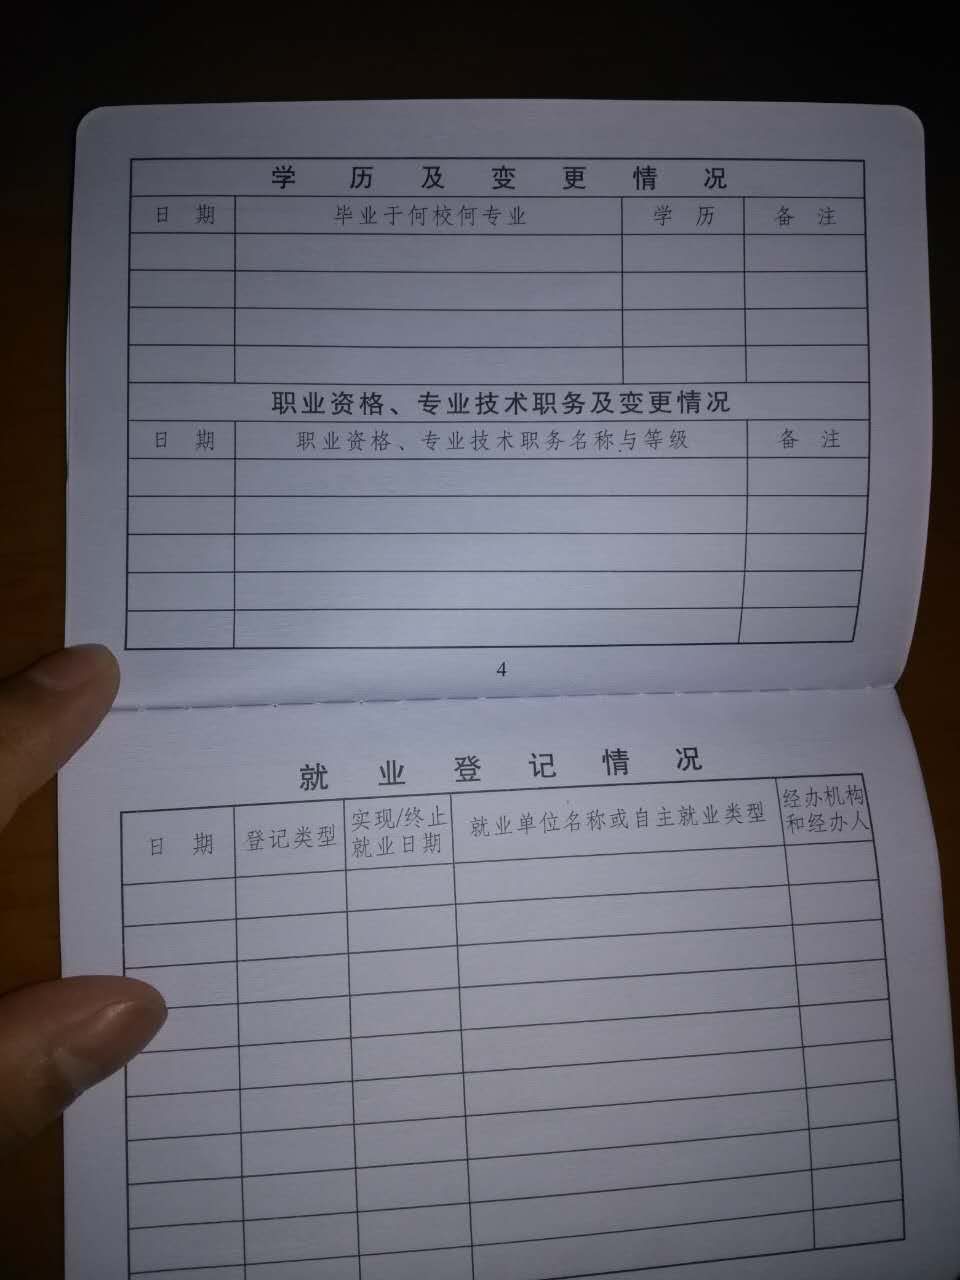 学历及变更情况
日期 毕业于何校何专业 学历 备注
职业资格、专业技术职务及变更情况
日期 职业资格、专业技术职务名称与等级 备注
4
就业登记情况
日期 登记类型 实现/终止就业日期 就业单位名称或自主就业类型 经办机构和经办人